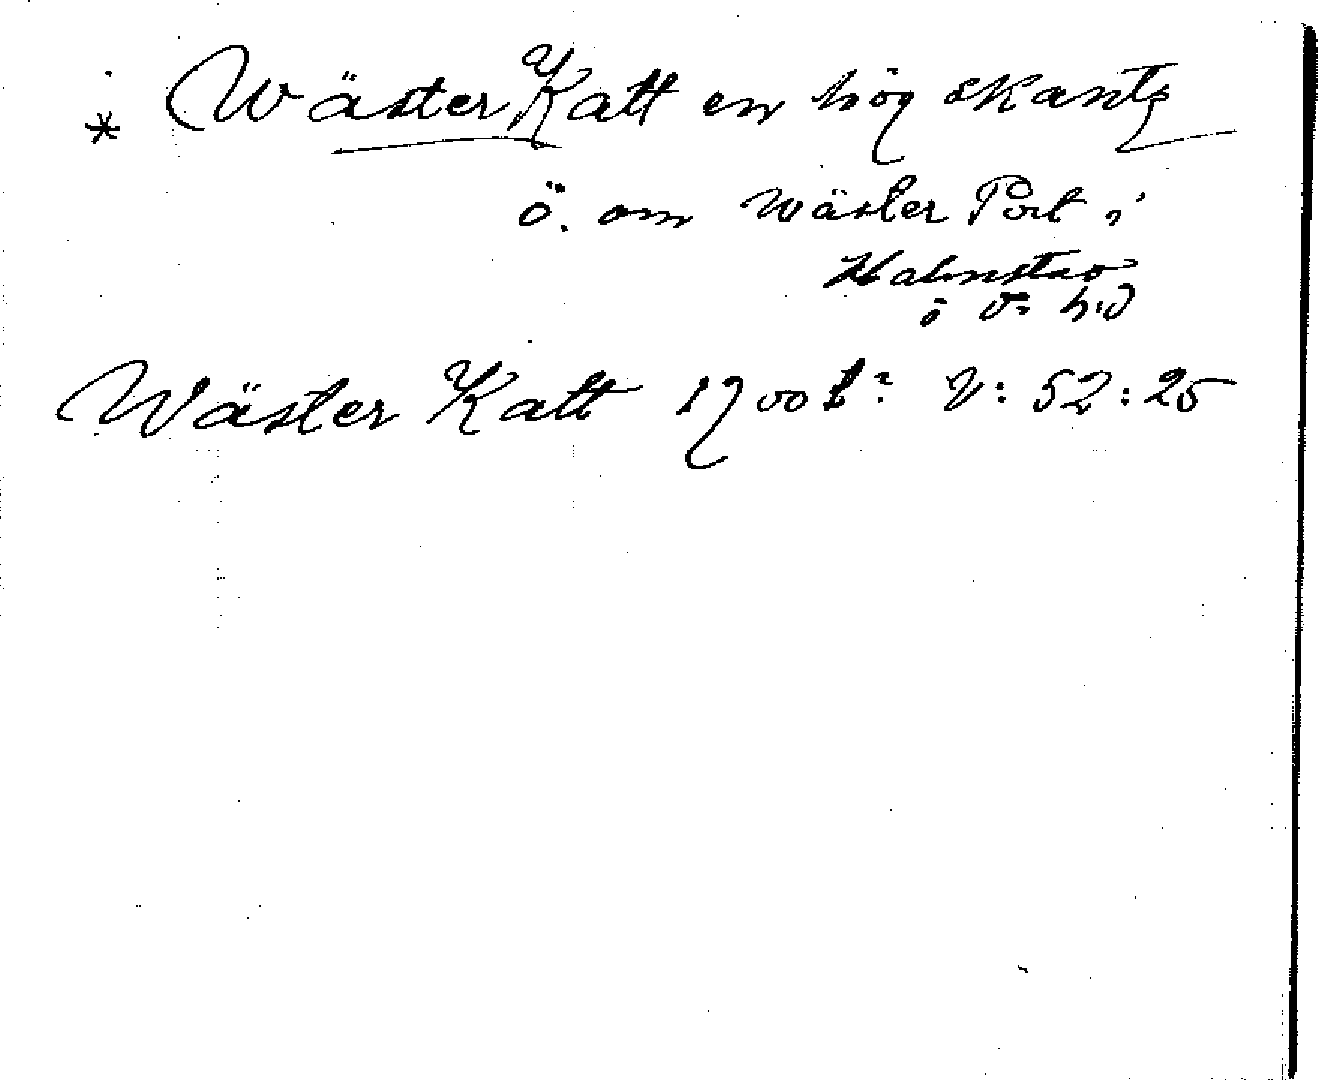 * Wäster Katt en hög skants
ö. om Wäster Port i
Halmstad
i
Wäster Katt 1700 V: 52:25